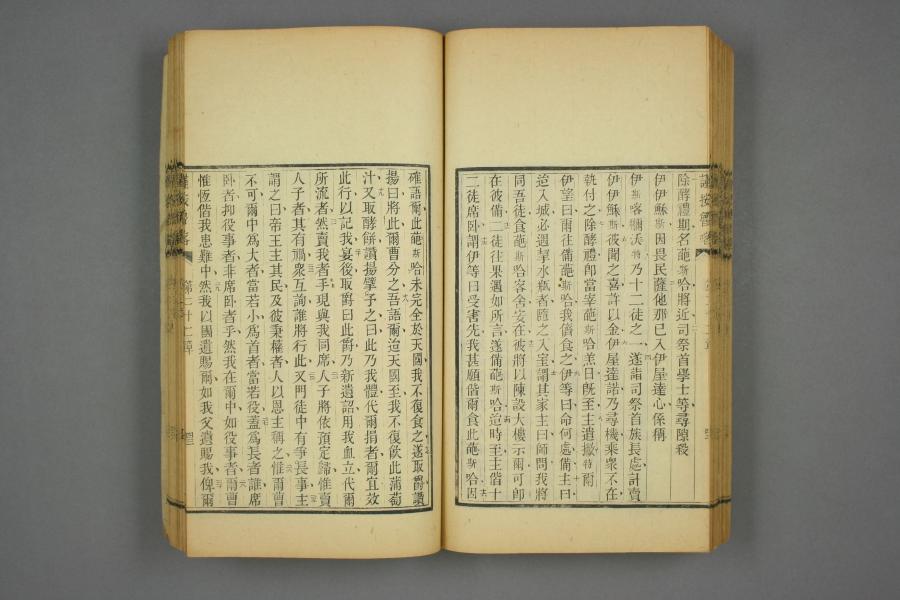 除酵禮期名葩斯哈將近司祭首學士等尋隙殺
伊伊穌斯因畏民薩他那已入伊屋達心係稱
伊斯客爾沃特乃十二徒之一遂詣司祭首族長處計賣
伊伊穌斯彼聞之喜許以金伊屋達諾乃尋機乘衆不在
執付之除酵禮卽當宰葩斯哈羔日旣至主遣撒特爾
伊望曰爾往備葩斯哈我儕食之伊等曰命何處備主曰
迨入城必遇挈水瓶者隨之入室謂其家主曰師問我將
同吾徒食葩斯哈客舍安在彼將以陳設大樓示爾可卽
在彼備二徒往果遇如所言遂備葩斯哈迨時至主偕十
二徒席卧謂伊等曰受害先我甚願偕爾食此葩斯哈因
確語爾此葩斯哈未完全於天國我不復食之遂取爵讚
揚曰將此爾曹分之吾語爾迨天國至我不復飲此葡萄
汁又取酵餅讚揚擘予之曰此乃我體代爾捐者爾宜效
此行以記我宴後取爵曰此爵乃新遺詔用我血立代爾
所流者然賣我者手現與我同席人子將依預定歸惟賣
人子者其有禍衆互詢誰將行此又門徒中有爭長事主
謂之曰帝王主其民及彼秉權者人以恩主稱之惟爾曹
不可爾中為大者當若小為首者當若役蓋為長者誰席
卧者抑役事者非席卧者乎然我在爾中如役事者爾曹
惟恆偕我患難中然我以國遺賜爾如我父遺賜我俾爾
第二十二章